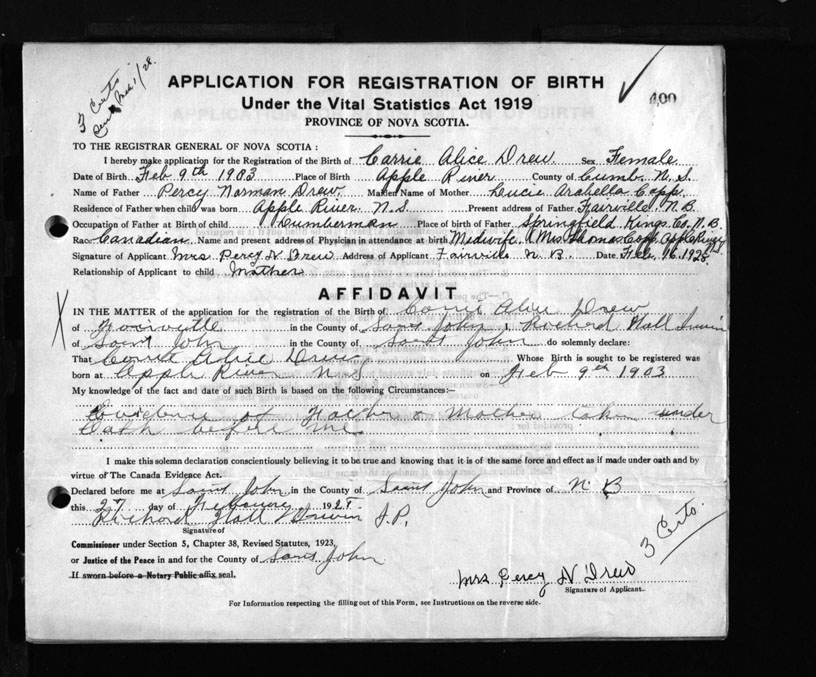 3 Certs
APPLICATION FOR REGISTRATION OF BIRTH
400
Under the Vital Statistics Act 1919
PROVINCE OF NOVA SCOTIA.
TO THE REGISTRAR GENERAL OF NOVA SCOTIA :
I hereby make application for the Registration of the Birth of Carrie Alice Drew Sex Female
Date of Birth Feb 9th 1903 Place of Birth Apple River County of Cumb. N. S.
Name of Father Percy Norman Drew Maiden Name of Mother Lucie Arabella Copp
Residence of Father when child was born Apple River N.S Present address of Father Fairville N.B.
Occupation of Father at Birth of child Lumberman Place of birth of Father Springfield Kings Co. N.B.
Race Canadian Name and present address of Physician in attendance at birth Midwife (Mrs Thomas Copp Apple River
Signature of Applicant Mrs Percy N Drew Address of Applicant Fairville N. B. Date Feb. 16. 1928.
Relationship of Applicant to child Mother
AFFIDAVIT
IN THE MATTER of the application for the registration of the Birth of Carrie Alice Drew
of Fairville in the County of Saint John I, Richard Hall
of Saint John in the County of Saint John do solemnly declare:
That Carrie Alice Drew Whose Birth is sought to be registered was
born at Apple River N S on Feb 9th 1903
My knowledge of the fact and date of such Birth is based on the following Circumstances:—
of Father & Mother taken under
Oath before me
I make this solemn declaration conscientiously believing it to be true and knowing that it is of the same force and effect as if made under oath and by
virtue of The Canada Evidence Act.
Declared before me at Saint John in the County of Saint John and Province of N B
this 27 day of February 1928.
Richard Hall J.P.
Signature of
Commissioner under Section 5, Chapter 38, Revised Statutes, 1923,
or Justice of the Peace in and for the County of Saint John
3 Certs.
If sworn before a Notary Public affix seal.
Mrs Percy N Drew
Signature of Applicant.
For Information respecting the filling out of this Form, see Instructions on the reverse side.